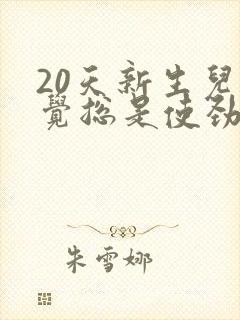 20天新生兒
覺總是使勁
朱雪娜